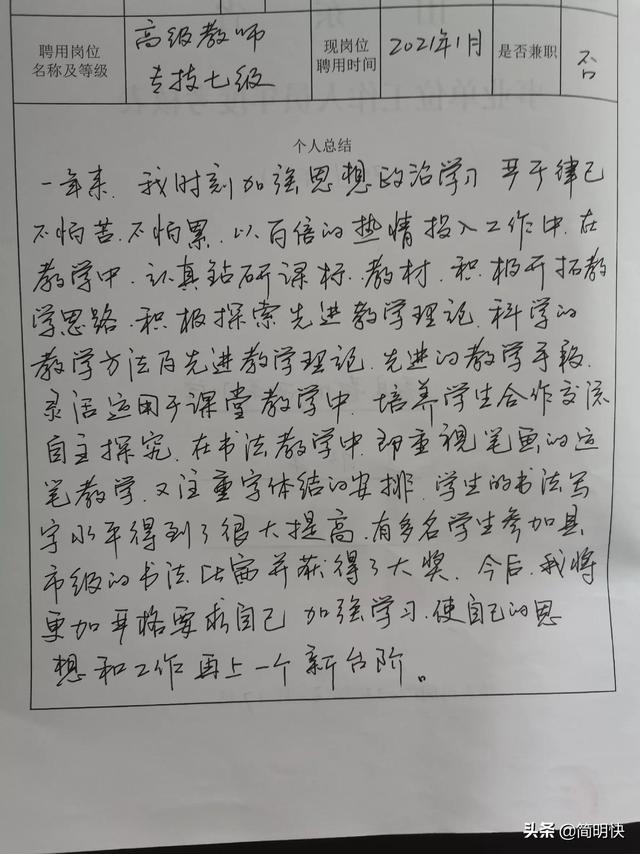 聘用岗位
名称及等级
高级教师
专技七级
现岗位
聘用时间
2021年1月
是否兼职
否
个人总结
一年来、我时刻加强思想政治学习 严于律己
不怕苦、不怕累、以百倍的热情投入工作中、在
教学中、认真钻研课标、教材、积极开拓教
学思路、积极探索先进教学理论、科学的
教学方法及先进教学理论、先进的教学手段、
灵活运用于课堂教学中、培养学生合作交流
自主探究、在书法教学中、即重视笔画的运
笔教学、又注重字体结的安排、学生的书法写
字水平得到了很大提高、有多名学生参加县
市级的书法比赛并获得了大奖、今后、我将
更加严格要求自己 加强学习、使自己的思
想和工作再上一个新台阶。
头条 @简明快